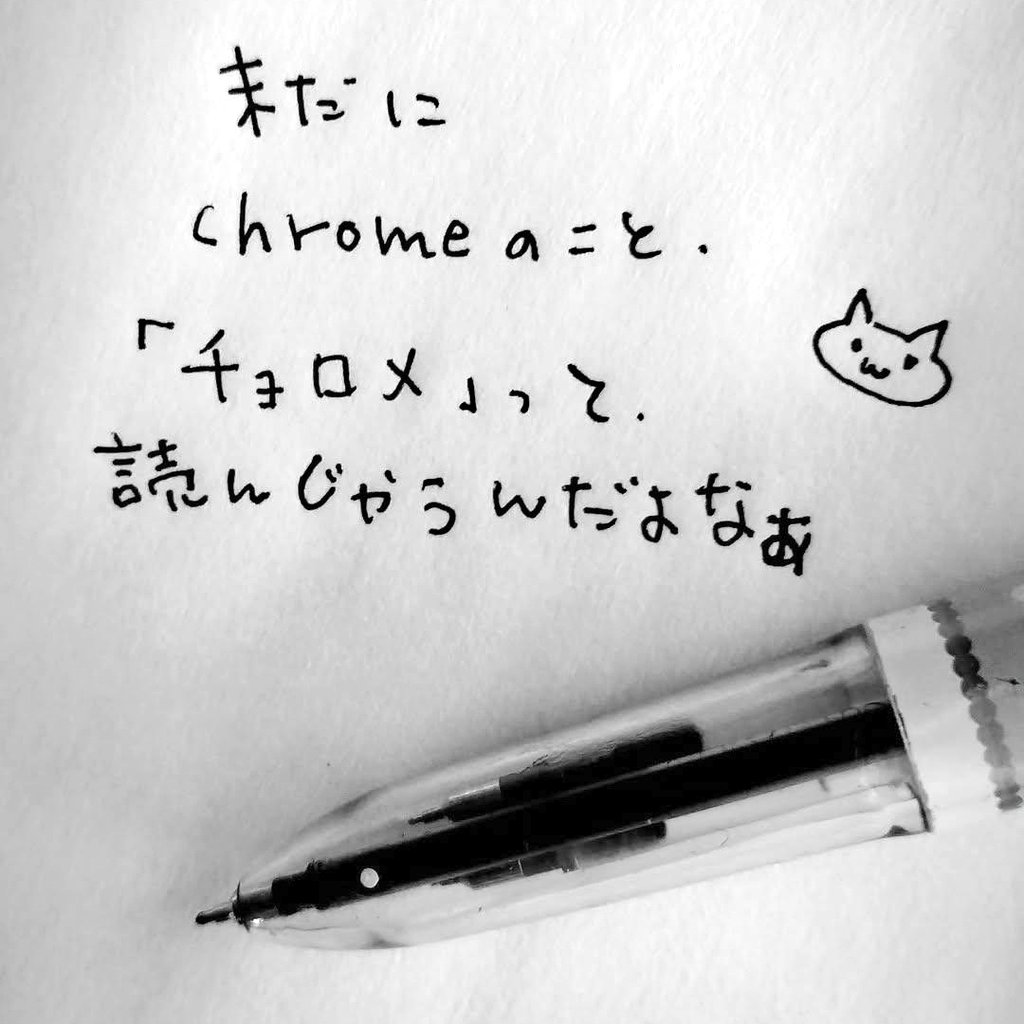 未だに
chromeのこと.
「チョロメ」って.
読んじゃうんだよなぁ